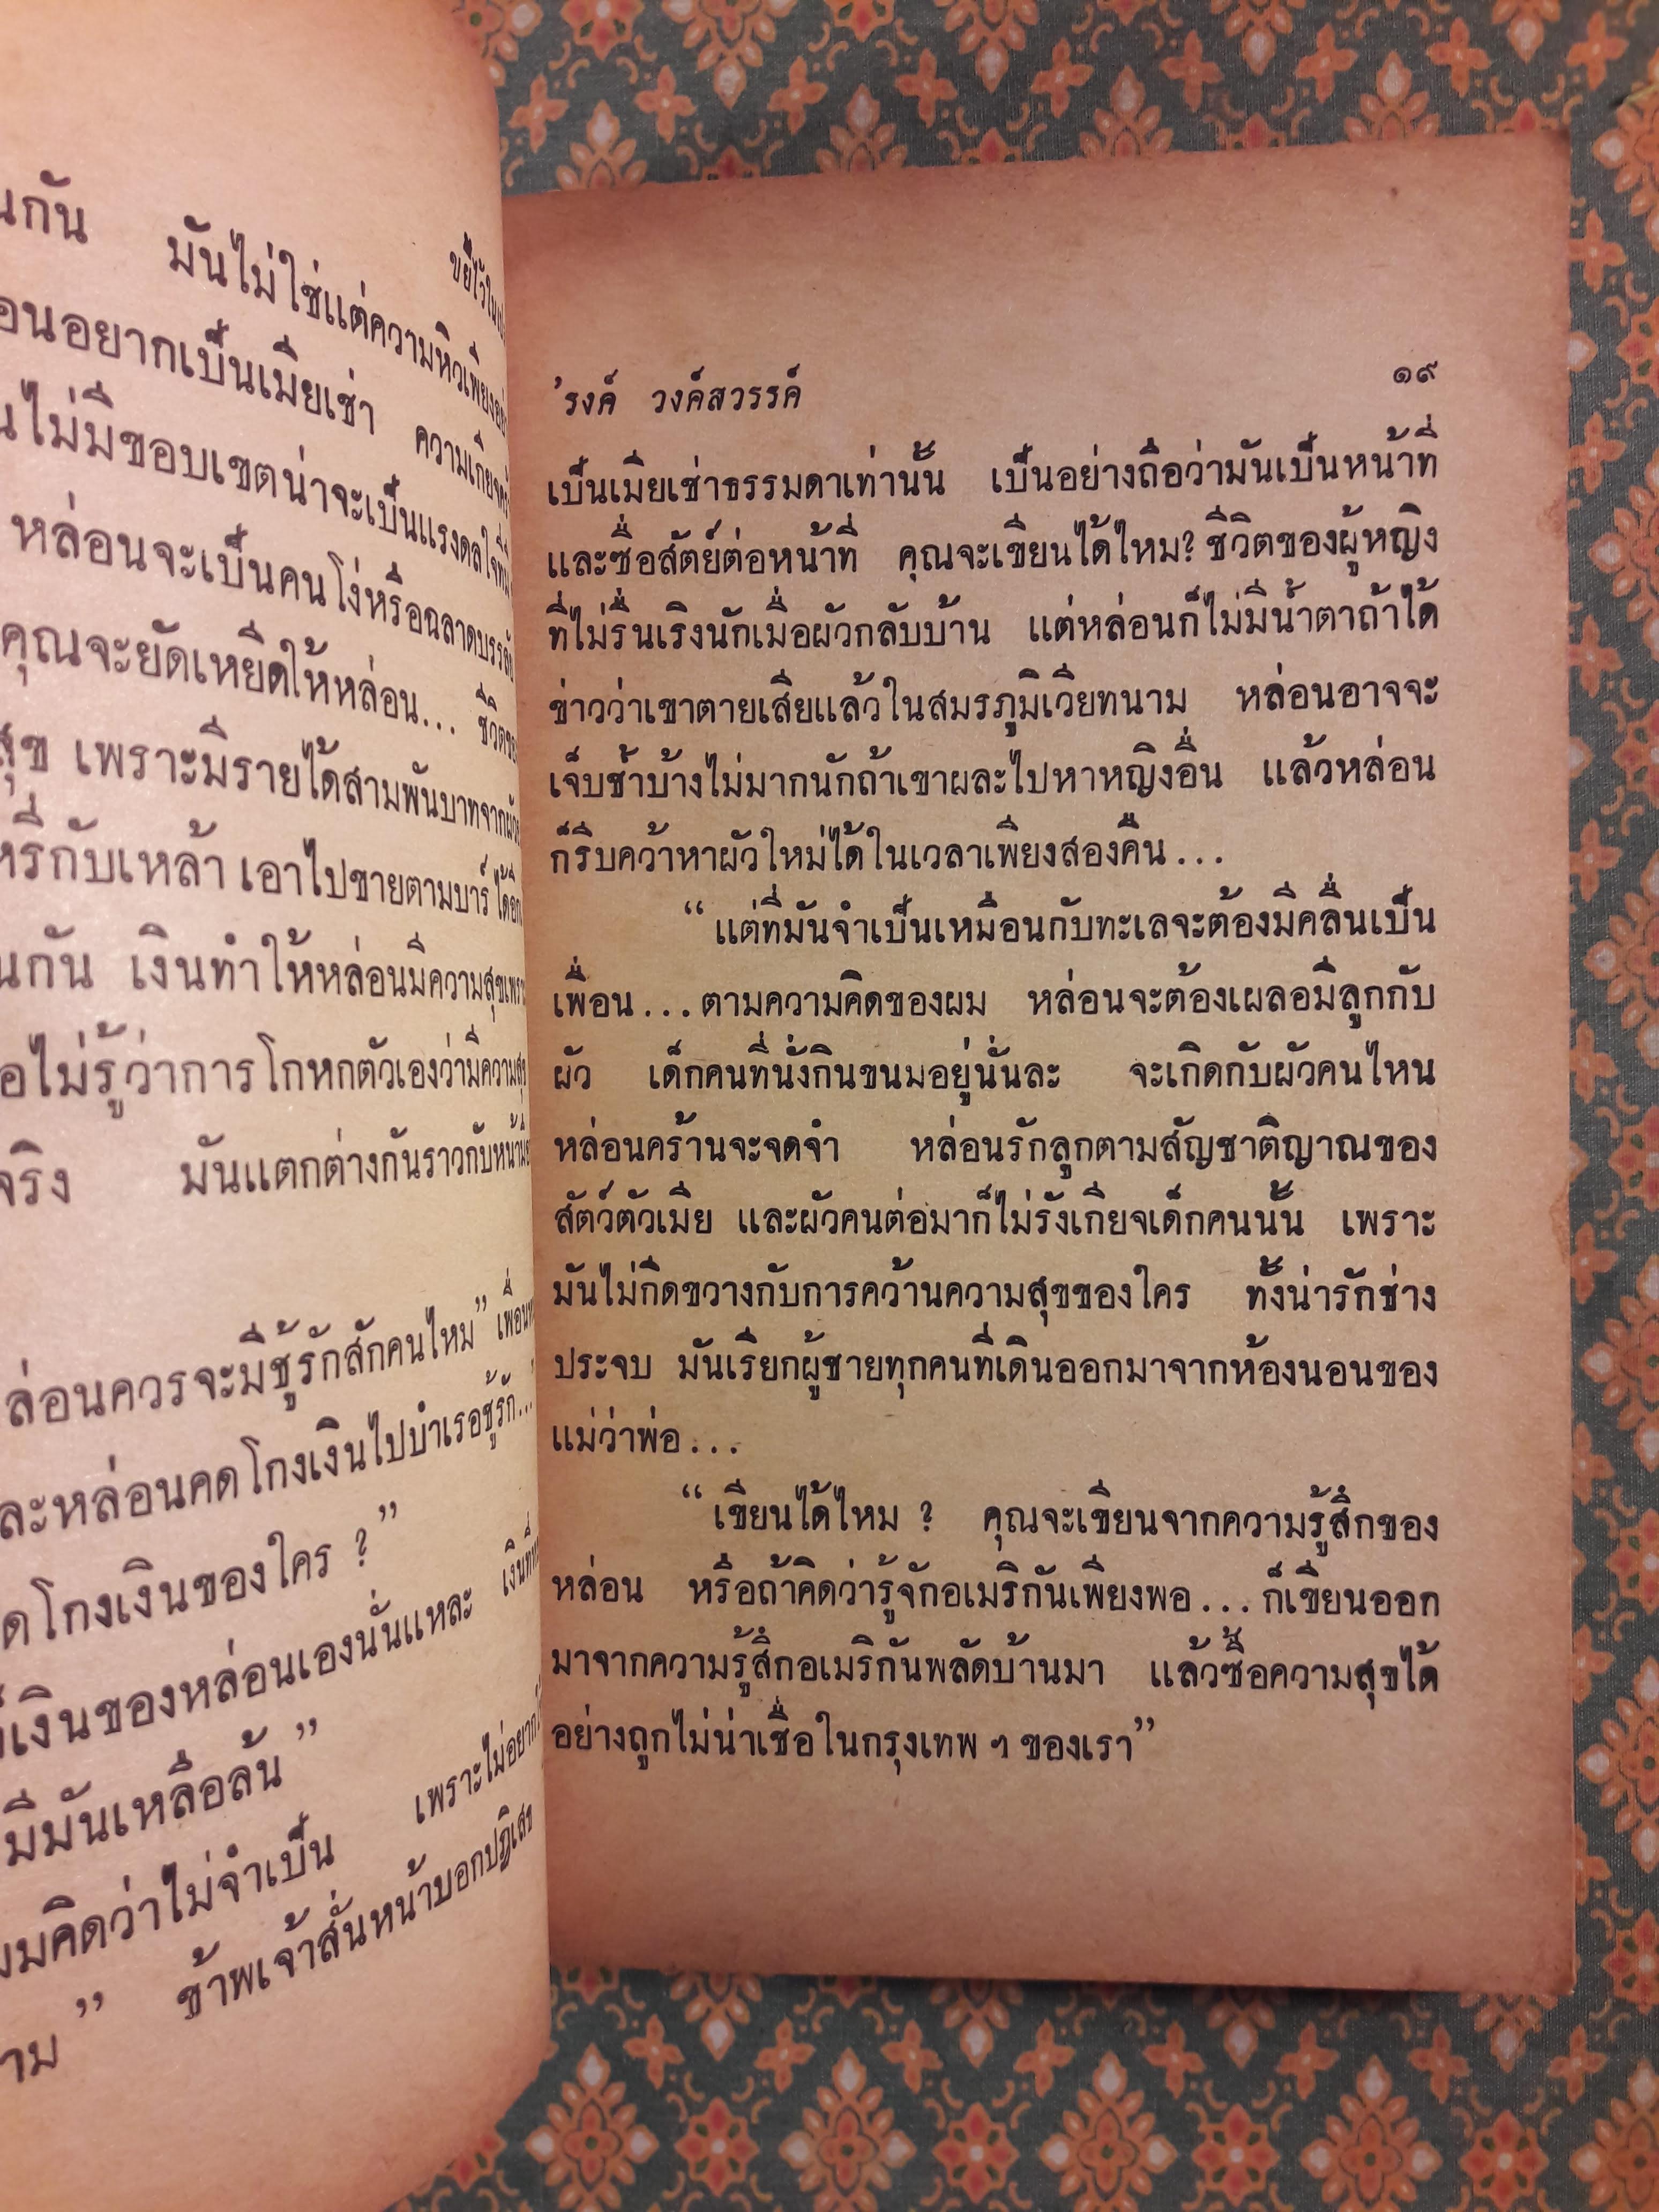 ขยี้ไว้ใน
นกัน มันไม่ใช่แต่ความหิวเพียง
อนอยากเป็นเมียเช่า ความเกียจ
นไม่มีขอบเขตน่าจะเป็นแรงดลใจ
หล่อนจะเป็นคนโง่หรือฉลาด
คุณจะยัดเหยียดให้หล่อน... ชีวิต
สุข เพราะมีรายได้สามพันบาทจากผัว
หรี่กับเหล้า เอาไปขายตามบาร์ ได้อีก
นกัน เงินทำให้หล่อนมีความสุข
อไม่รู้ว่าการโกหกตัวเองว่ามีความสุข
จริง มันแตกต่างกันราวกับหน้ามือ
ล่อนควรจะมีชู้รักสักคนไหม” เพื่อน
ละหล่อนคดโกงเงินไปบำเรอชู้รัก...
ดโกงเงินของใคร ?”
เงินของหล่อนเองนั่นแหละ เงิน
มีมันเหลือล้น”
มคิดว่าไม่จำเป็น เพราะไม่อยาก
าม” ข้าพเจ้าสั่นหน้าบอกปฏิเสธ
’รงค์ วงค์สวรรค์ ๑๙
เป็นเมียเช่าธรรมดาเท่านั้น เป็นอย่างถือว่ามันเป็นหน้าที่
และซื่อสัตย์ต่อหน้าที่ คุณจะเขียนได้ไหม? ชีวิตของผู้หญิง
ที่ไม่รื่นเริงนักเมื่อผัวกลับบ้าน แต่หล่อนก็ไม่มีน้ำตาถ้าได้
ข่าวว่าเขาตายเสียแล้วในสมรภูมิเวียทนาม หล่อนอาจจะ
เจ็บช้ำบ้างไม่มากนักถ้าเขาผละไปหาหญิงอื่น แล้วหล่อน
ก็รีบคว้าหาผัวใหม่ได้ในเวลาเพียงสองคืน...
“แต่ที่มันจำเป็นเหมือนกับทะเลจะต้องมีคลื่นเป็น
เพื่อน...ตามความคิดของผม หล่อนจะต้องเผลอมีลูกกับ
ผัว เด็กคนที่นั่งกินขนมอยู่นั่นละ จะเกิดกับผัวคนไหน
หล่อนคร้านจะจดจำ หล่อนรักลูกตามสัญชาติญาณของ
สัตว์ตัวเมีย และผัวคนต่อมาก็ไม่รังเกียจเด็กคนนั้น เพราะ
มันไม่กีดขวางกับการคว้านความสุขของใคร ทั้งน่ารักช่าง
ประจบ มันเรียกผู้ชายทุกคนที่เดินออกมาจากห้องนอนของ
แม่ว่าพ่อ...
“เขียนได้ไหม ? คุณจะเขียนจากความรู้สึกของ
หล่อน หรือถ้าคิดว่ารู้จักอเมริกันเพียงพอ...ก็เขียนออก
มาจากความรู้สึกอเมริกันพลัดบ้านมา แล้วซื้อความสุขได้
อย่างถูกไม่น่าเชื่อในกรุงเทพ ๆ ของเรา”